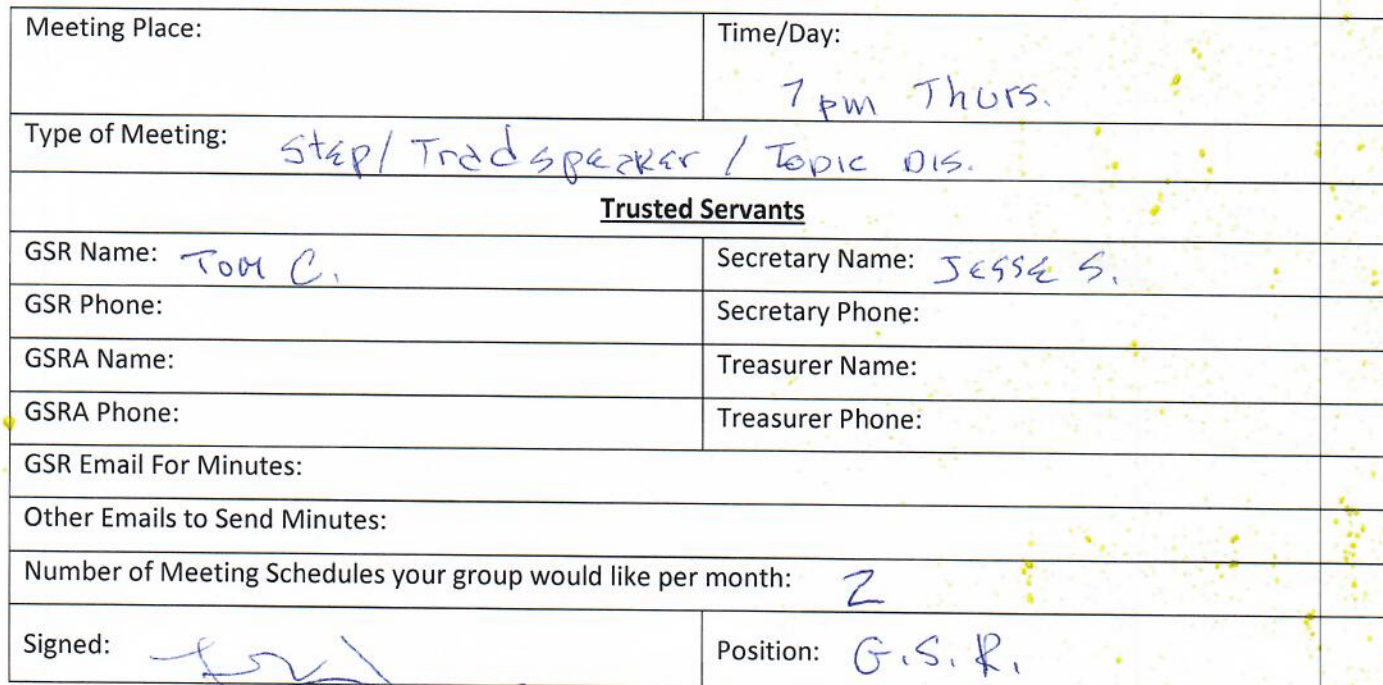 Meeting Place: Time/Day:
7 pm Thurs.
Type of Meeting: Step/ Trad speaker / Topic DIS.
Trusted Servants
GSR Name: Tom C. Secretary Name: Jesse S.
GSR Phone: Secretary Phone:
GSRA Name: Treasurer Name:
GSRA Phone: Treasurer Phone:
GSR Email For Minutes:
Other Emails to Send Minutes:
Number of Meeting Schedules your group would like per month: 2
Signed: Position: G.S.R.